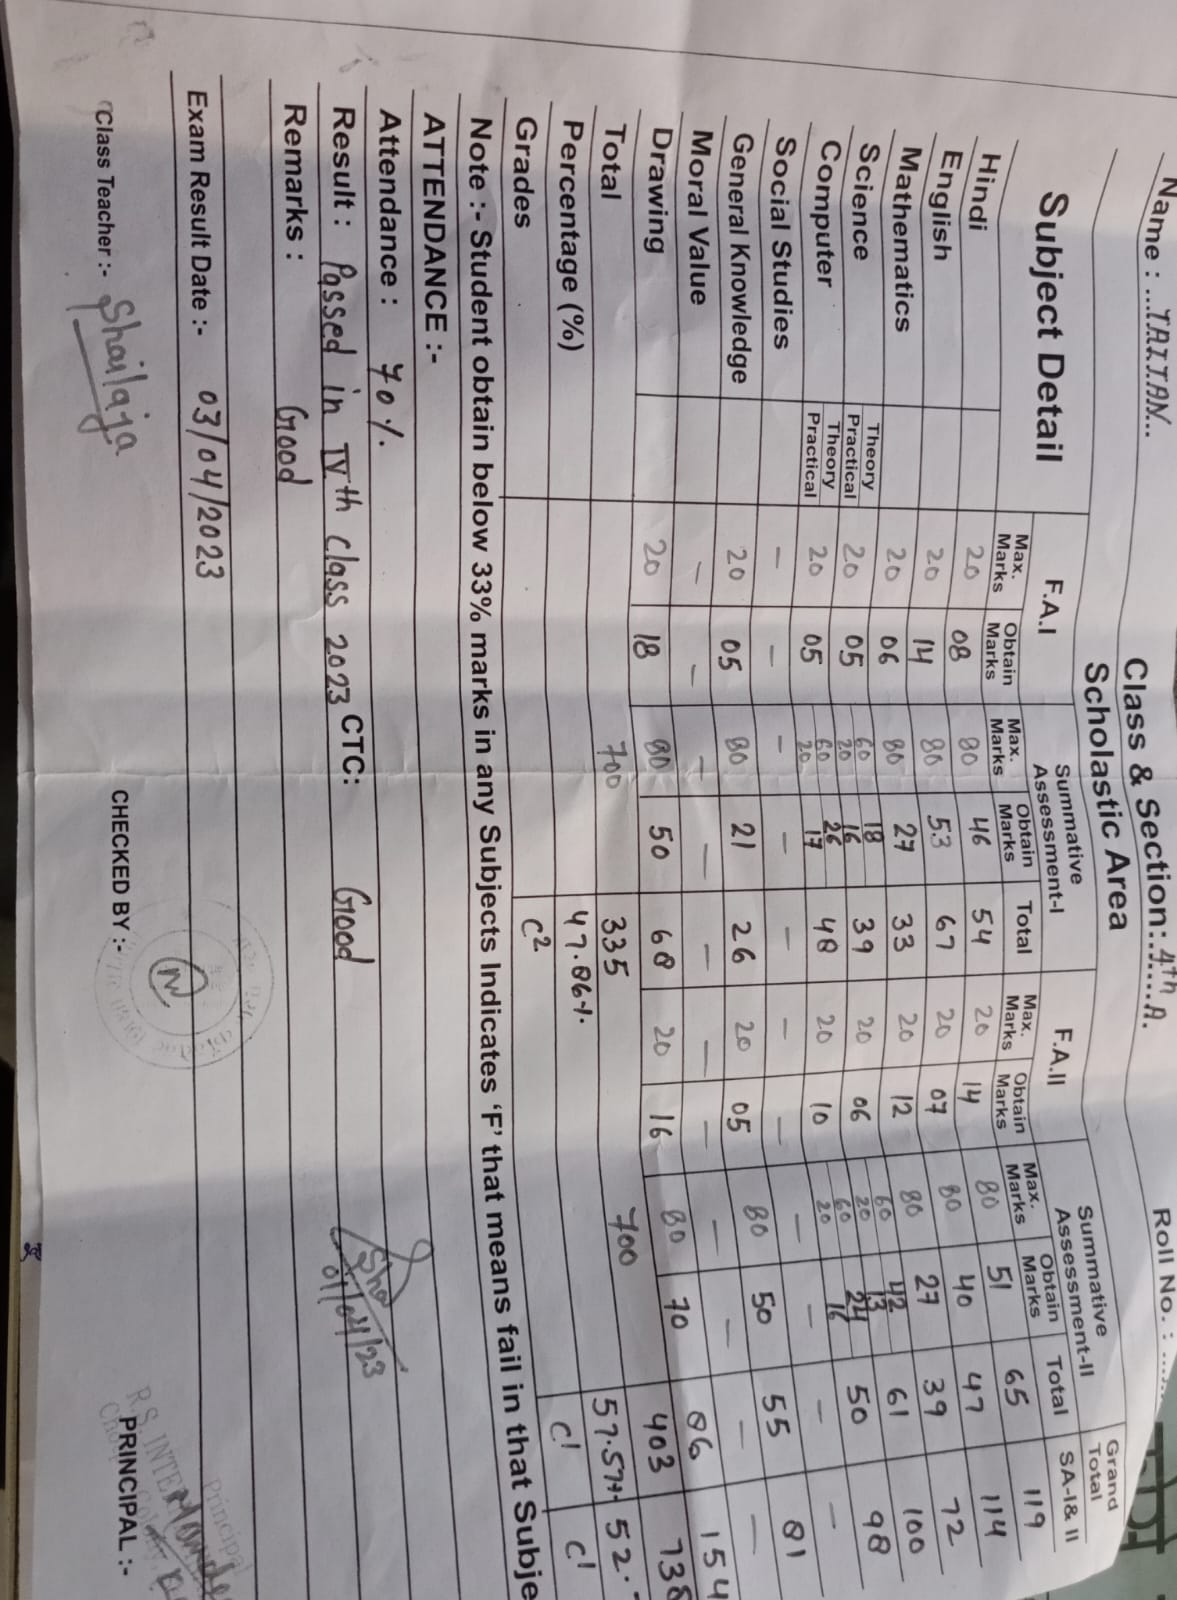 Name : ...TAIIAN... Class & Section:.4th....A. Roll No. : ......
Scholastic Area
Subject Detail F.A.I Summative Assessment-I F.A.II Summative Assessment-II Grand Total
Max. Marks Obtain Marks Max. Marks Obtain Marks Total Max. Marks Obtain Marks Max. Marks Obtain Marks Total SA-I& II
Hindi 20 08 80 46 54 20 14 80 51 65 119
English 20 14 80 53 67 20 07 80 40 47 114
Mathematics 20 06 80 27 33 20 12 80 27 39 72
Science Theory 20 05 60 18 39 20 06 60 42 61 100
Practical 20 16 20 13
Computer Theory 20 05 60 26 48 20 10 60 24 50 98
Practical 20 17 20 16
Social Studies — — — — — — — — — — —
General Knowledge 20 05 80 21 26 20 05 80 50 55 81
Moral Value — — — — — — — — — — —
Drawing 20 18 80 50 68 20 16 80 70 86 154
Total 700 335 700 403 738
Percentage (%) 47.86% 57.57% 52.
Grades C2 C1 C1
Note :- Student obtain below 33% marks in any Subjects Indicates 'F' that means fail in that Subje
ATTENDANCE :-
Attendance : 70%.
Result : Passed in IVth class 2023 CTC: Good
Remarks : Good
01/04/23
Exam Result Date :- 03/04/2023
Class Teacher :- Shailaja CHECKED BY :- PRINCIPAL :-
Principal
R.S. INTER